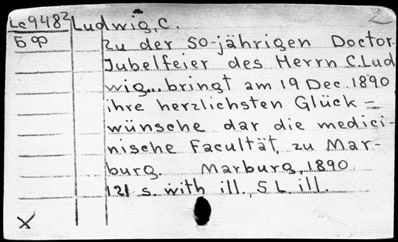 Le 948²
Ludwig, C.
2
БФ
Zu der 50-jährigen Doctor-
Jubelfeier des Herrn C. Lud
wig... bringt am 19 Dec. 1890
ihre herzlichsten Glück=
wünsche dar die medici-
nische Facultät, zu Mar-
burg. Marburg, 1890.
121 s. with ill., 5 L. ill.
X